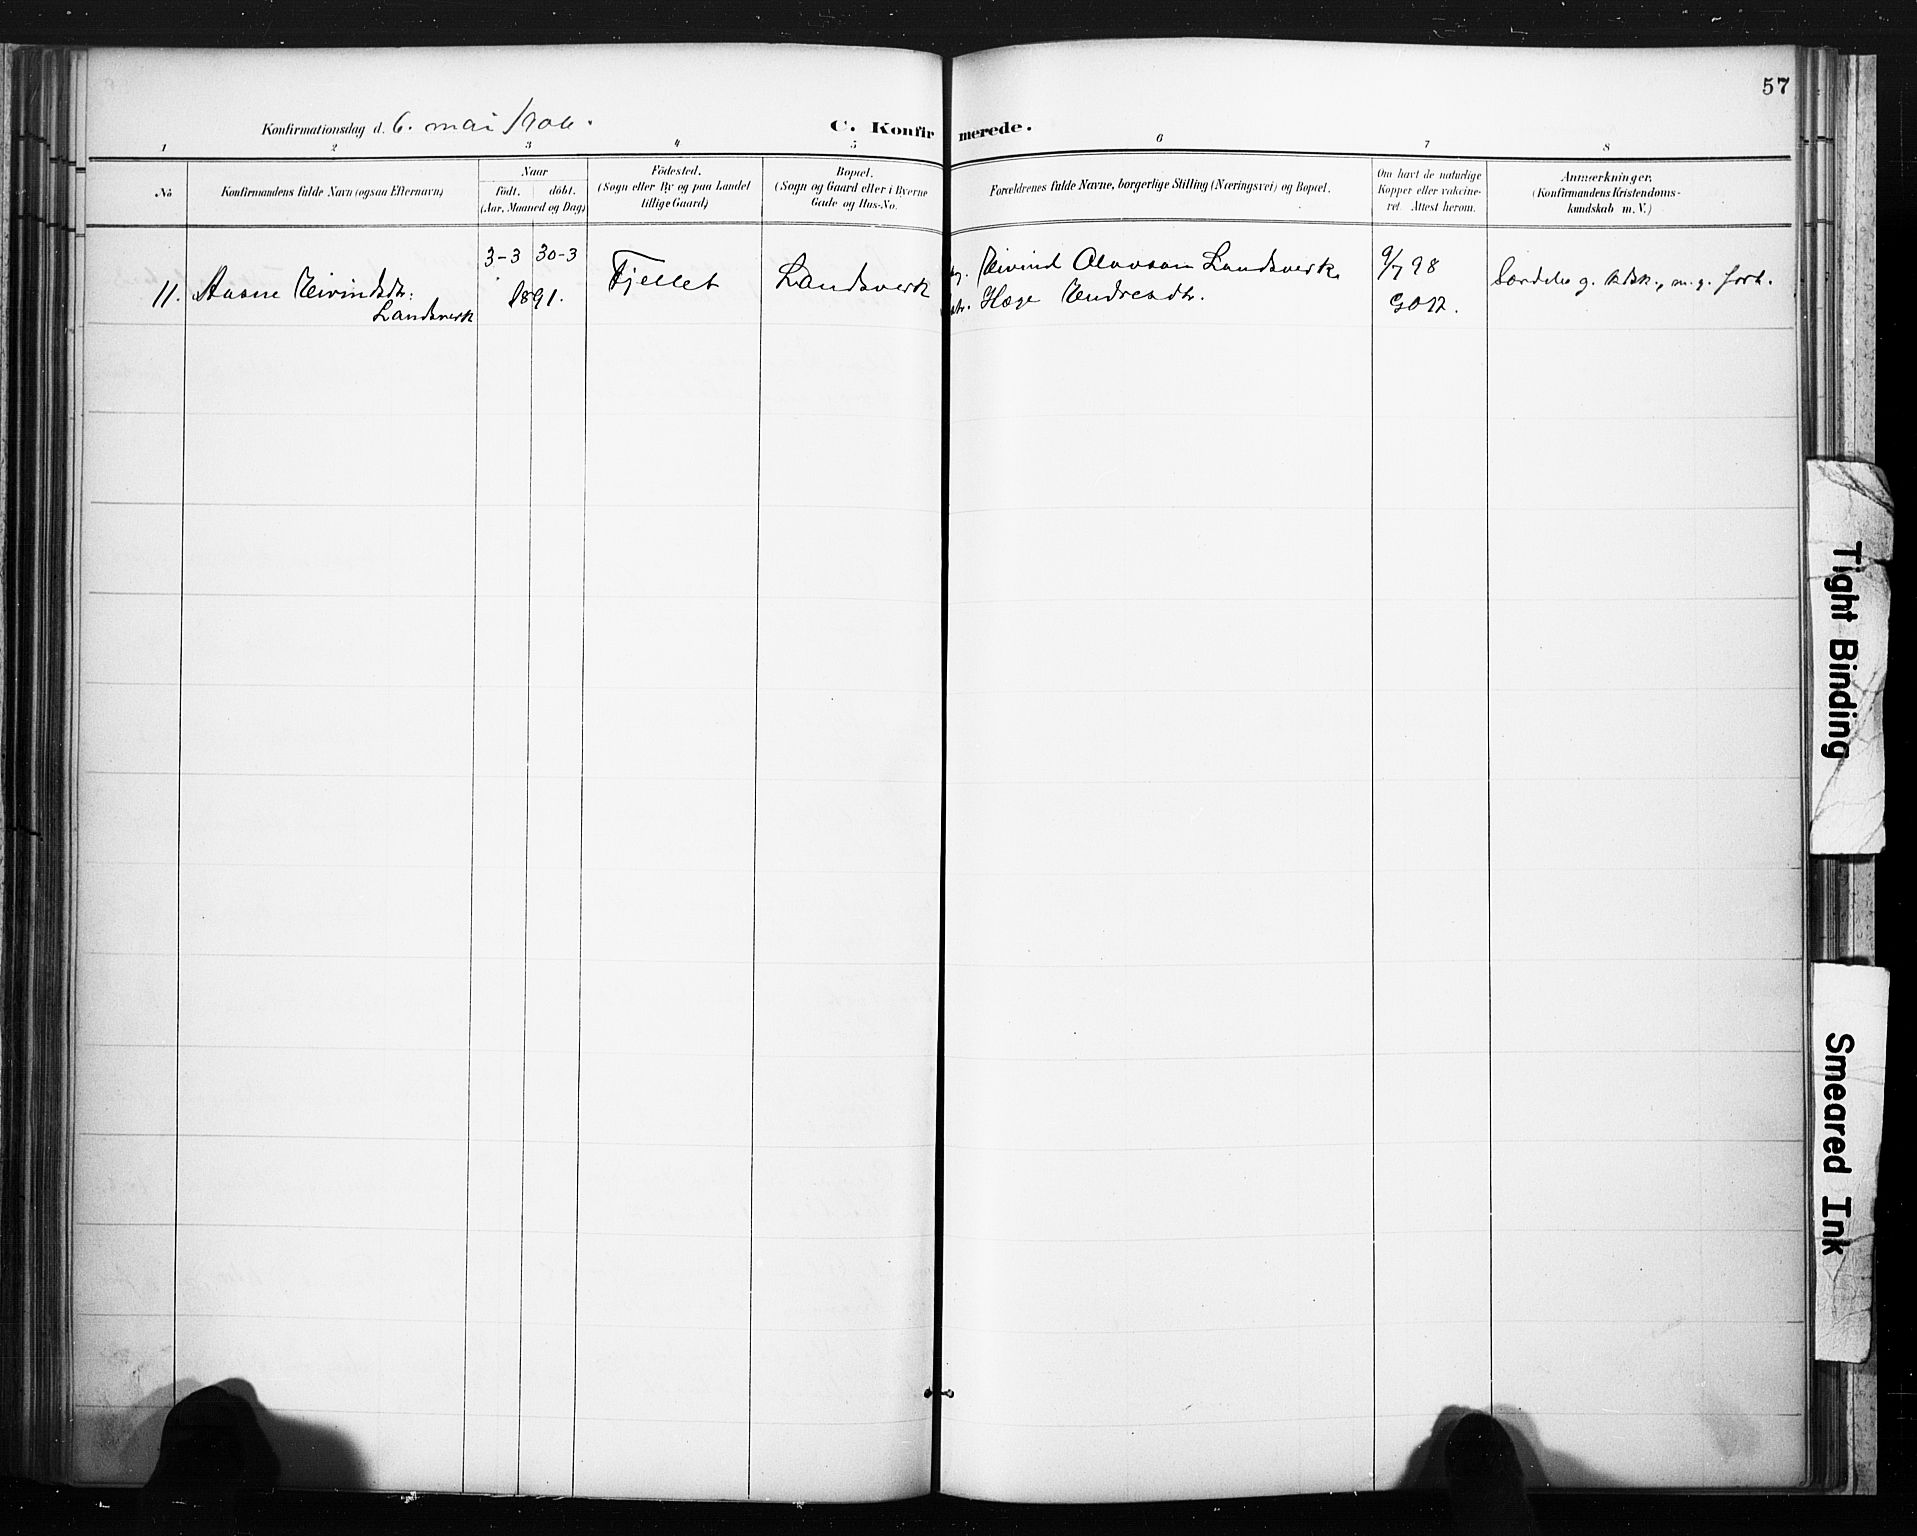 57
Konfirmationsdag d. 6. mai 1906.
C. Konfirmerede.
1 2 3 4 5 6 7 8
No
Konfirmandens fulde Navn (ogsaa Efternavn)
Naar
födt. döbt.
(Aar, Maaned og Dag)
Födested.
(Sogn eller By og paa Landet
tillige Gaard)
Bopæl.
(Sogn og Gaard eller i Byerne
Gade og Hus-No.
Forældrenes fulde Navne, borgerlige Stilling (Næringsvei) og Bopæl.
Om havt de naturlige
Kopper eller vakcine-
ret. Attest herom.
Anmærkninger.
(Konfirmandens Kristendoms-
kundskab m. V.)
3-3 30-3
11. Aasne Eivindsdtr. 1891. Fjellet Landsverk
Landsverk
Eivind Olavson Landsverk
Hæge Endresdtr.
9/7 98
Særdeles g. kdsk., m. g. forh.
Tight Binding
Smeared Ink